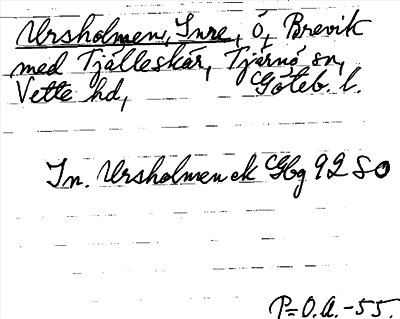 Ursholmen, Inre, ö, Brevik
med Tjälleskär, Tjärnö sn,
Vette hd, Göteb. l.
In. Ursholmen ek Gbg 92 SO
P=O.A.-55.